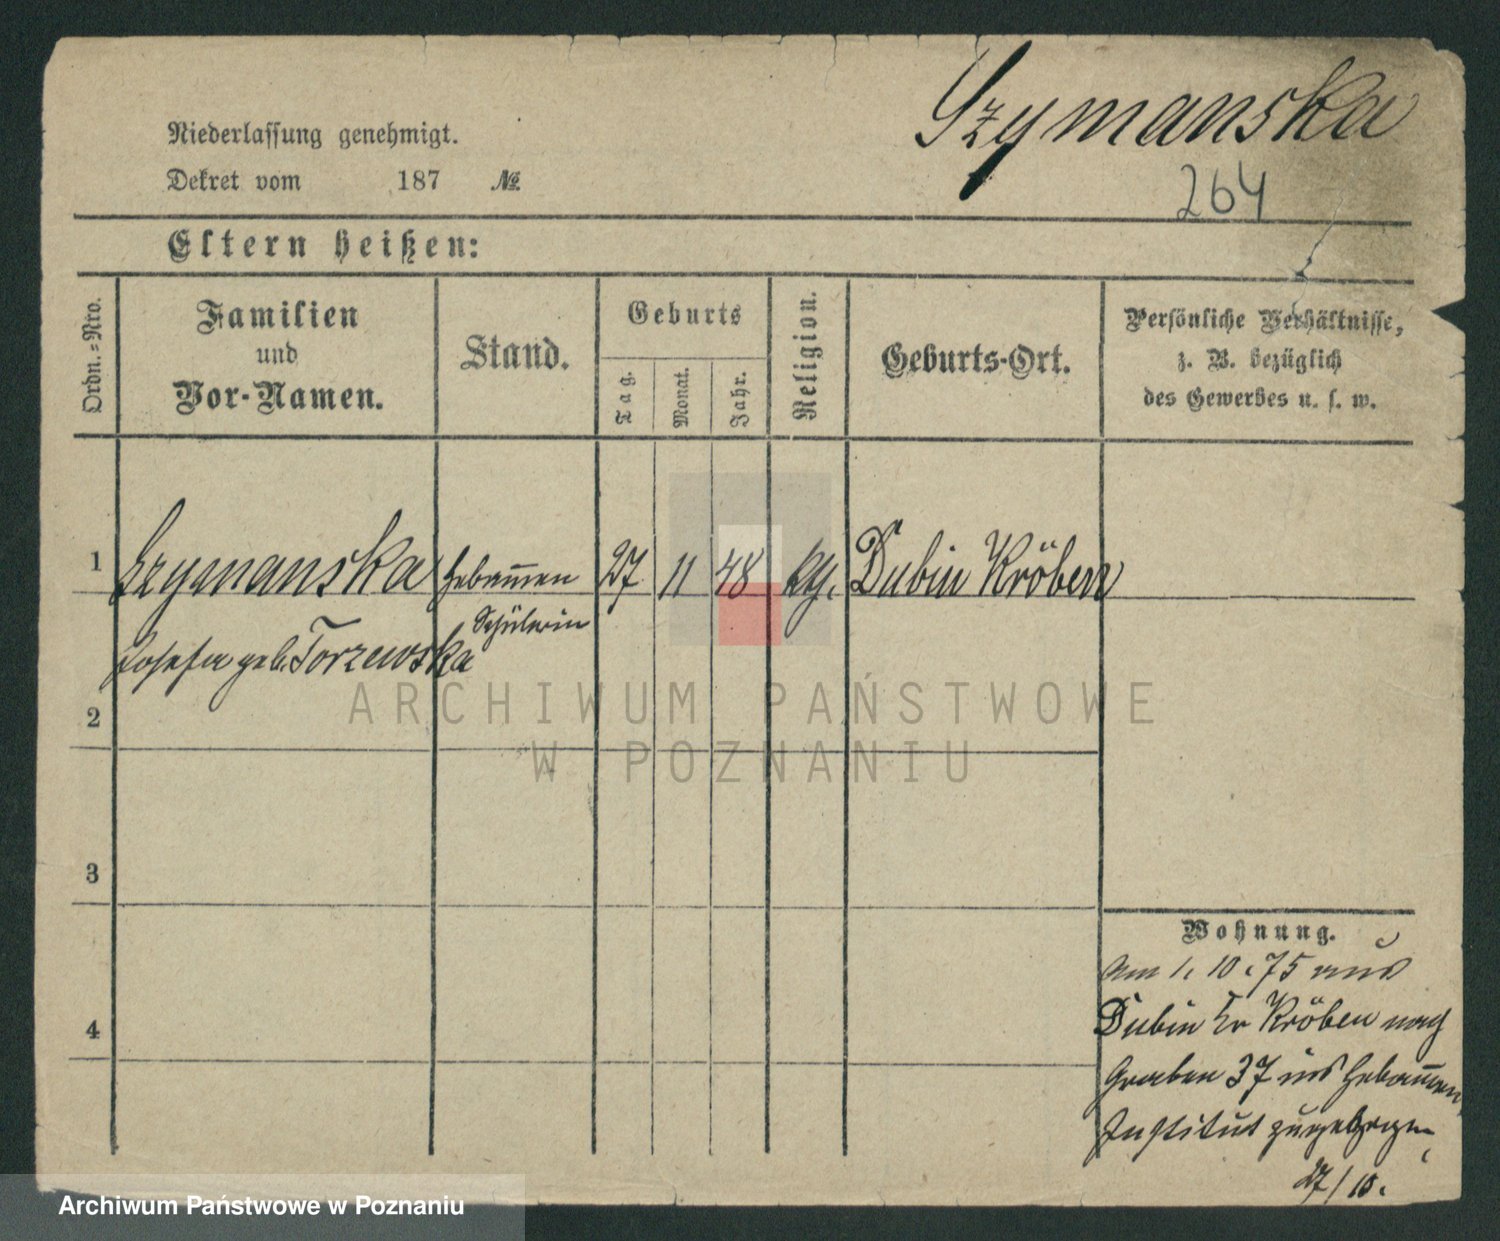 Szymanska
Niederlassung genehmigt.
Dekret vom 187 №
264
Eltern heißen:
Ordn.=Nro.
Familien
und
Vor-Namen.
Stand.
Geburts
Tag.
Monat.
Jahr.
Religion.
Geburts-Ort.
Persönliche Verhältnisse,
z. B. bezüglich
des Gewerbes u. s. w.
1 Szymanska Hebam̅en 27 11 48 kth. Dubin Kröben
Schülerin
Josefa geb. Torzewska
2
3
4
Wohnung.
Am 1. 10. 75 aus
Dubin Kr Kröben nach
Graben 37 ins Hebam̅en
Institut zugezogen
27/10.
ARCHIWUM PAŃSTWOWE
W POZNANIU
Archiwum Państwowe w Poznaniu